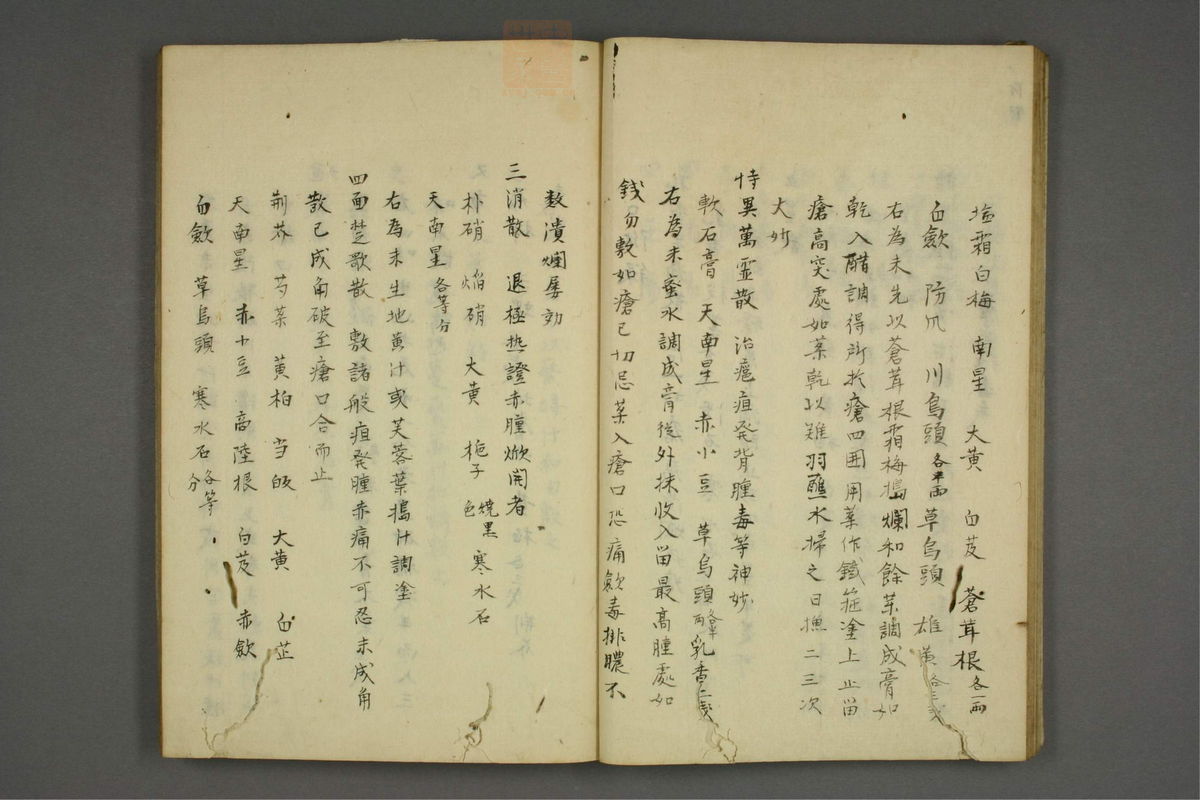 塩霜白梅　南星　大黄　白芨　蒼茸根各一両
白歛　防风　川烏頭各半両　草烏頭　雄黄各三戋
右為末先以蒼茸根霜梅搗爛和餘薬調成膏如
乾入醋調得所扵瘡四囲用薬作鐵箍塗上止畄
瘡高突處如薬乾以雞羽蘸水掃之日撫二三次
大妙
恃異萬霊散　治癰疽発背腫毒等神妙
軟石膏　天南星　赤小豆　草烏頭各半両　乳香二戋
右為末蜜水調成膏従外抹收入畄最高腫處如
銭勿敷如瘡已切忌薬入瘡口恐痛歛毒排膿不
数潰爛屡効
三消散　退極热證赤腫焮開者
朴硝　焔硝　大黄　梔子焼黒色　寒水石
天南星各等分
右為末生地黄汁或芙蓉葉搗汁調塗
四面楚歌散　敷諸般疽発腫赤痛不可忍未成角
散已成角破至瘡口合而止
荊芥　芍薬　黄柏　当皈　大黄　白芷
天南星　赤小豆　啇陸根　白芨　赤歛
白歛　草烏頭　寒水石各等分